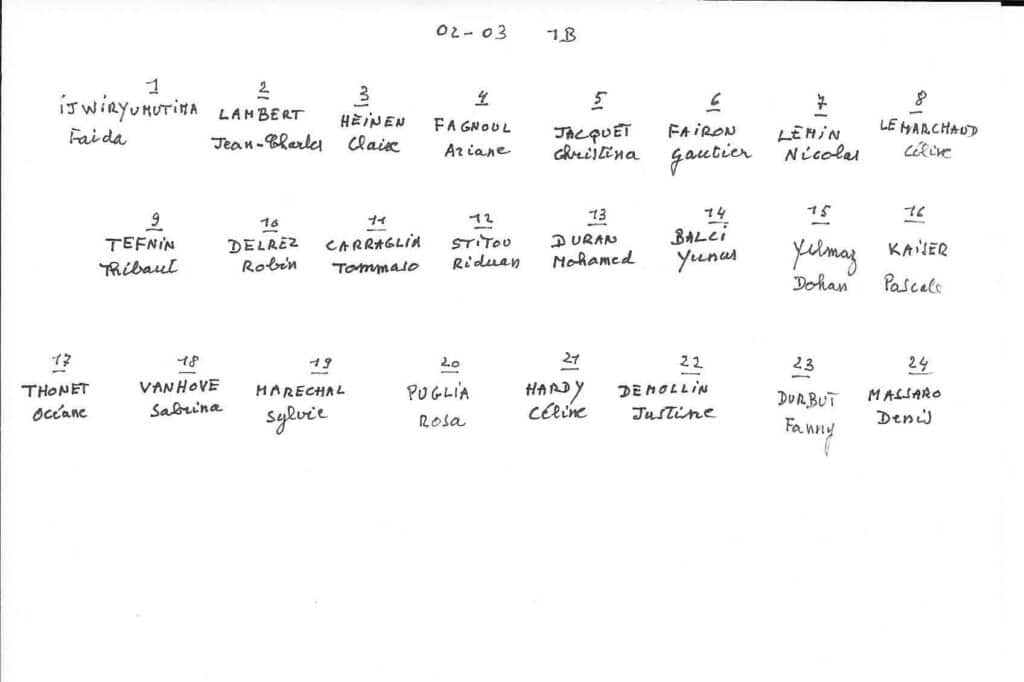 02-03 1B
1 2 3 4 5 6 7 8
IJWIRYUMUTIMA LAMBERT HEINEN FAGNOUL JACQUET FAIRON LEMIN LEMARCHAUD
Faida Jean-Charles Claire Ariane Christina Gautier Nicolas Céline
9 10 11 12 13 14 15 16
TEFNIN DELREZ CARRAGLIA STITOU DURAN BALCI Yilmaz KAISER
Thibaut Robin Tommaso Riduan Mohamed Yunus Dohan Pascale
17 18 19 20 21 22 23 24
THONET VANHOVE MARECHAL PUGLIA HARDY DEMOLLIN DURBUT MASSARO
Océane Sabrina Sylvie ROSA Céline Justine Fanny Denis